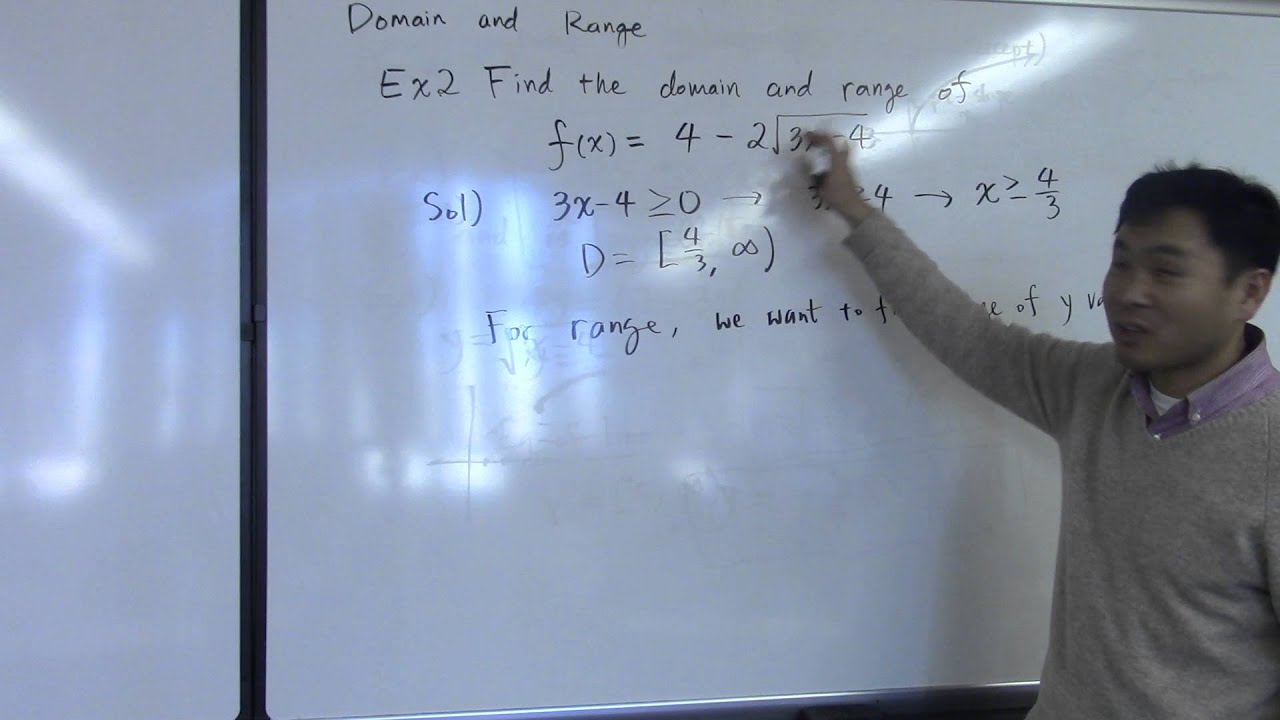 Domain and Range
Ex2 Find the domain and range of
f(x) = 4 - 2√3x-4
Sol) 3x-4 ≥ 0 → 4 → x ≥ 4/3
D = [4/3, ∞)
For range, we want to of y